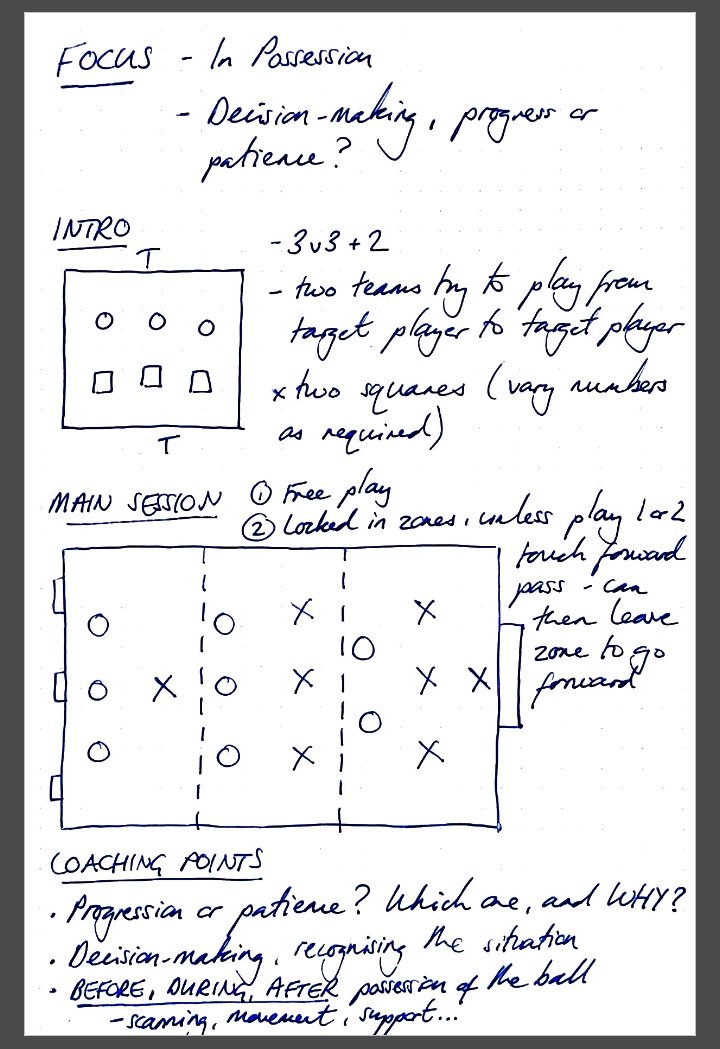 FOCUS - In Possession
- Decision-making, progress or
patience?
INTRO
T
- 3v3 + 2
- two teams try to play from
target player to target player
x two squares (vary numbers
as required)
T
MAIN SESSION ① Free play
② Locked in zones, unless play 1 or 2
touch forward
pass - can
then leave
zone to go
forward
X X
X X X X
X X
COACHING POINTS
· Progression or patience? Which one, and WHY?
· Decision-making, recognising the situation
· BEFORE, DURING, AFTER possession of the ball
- scanning, movement, support...